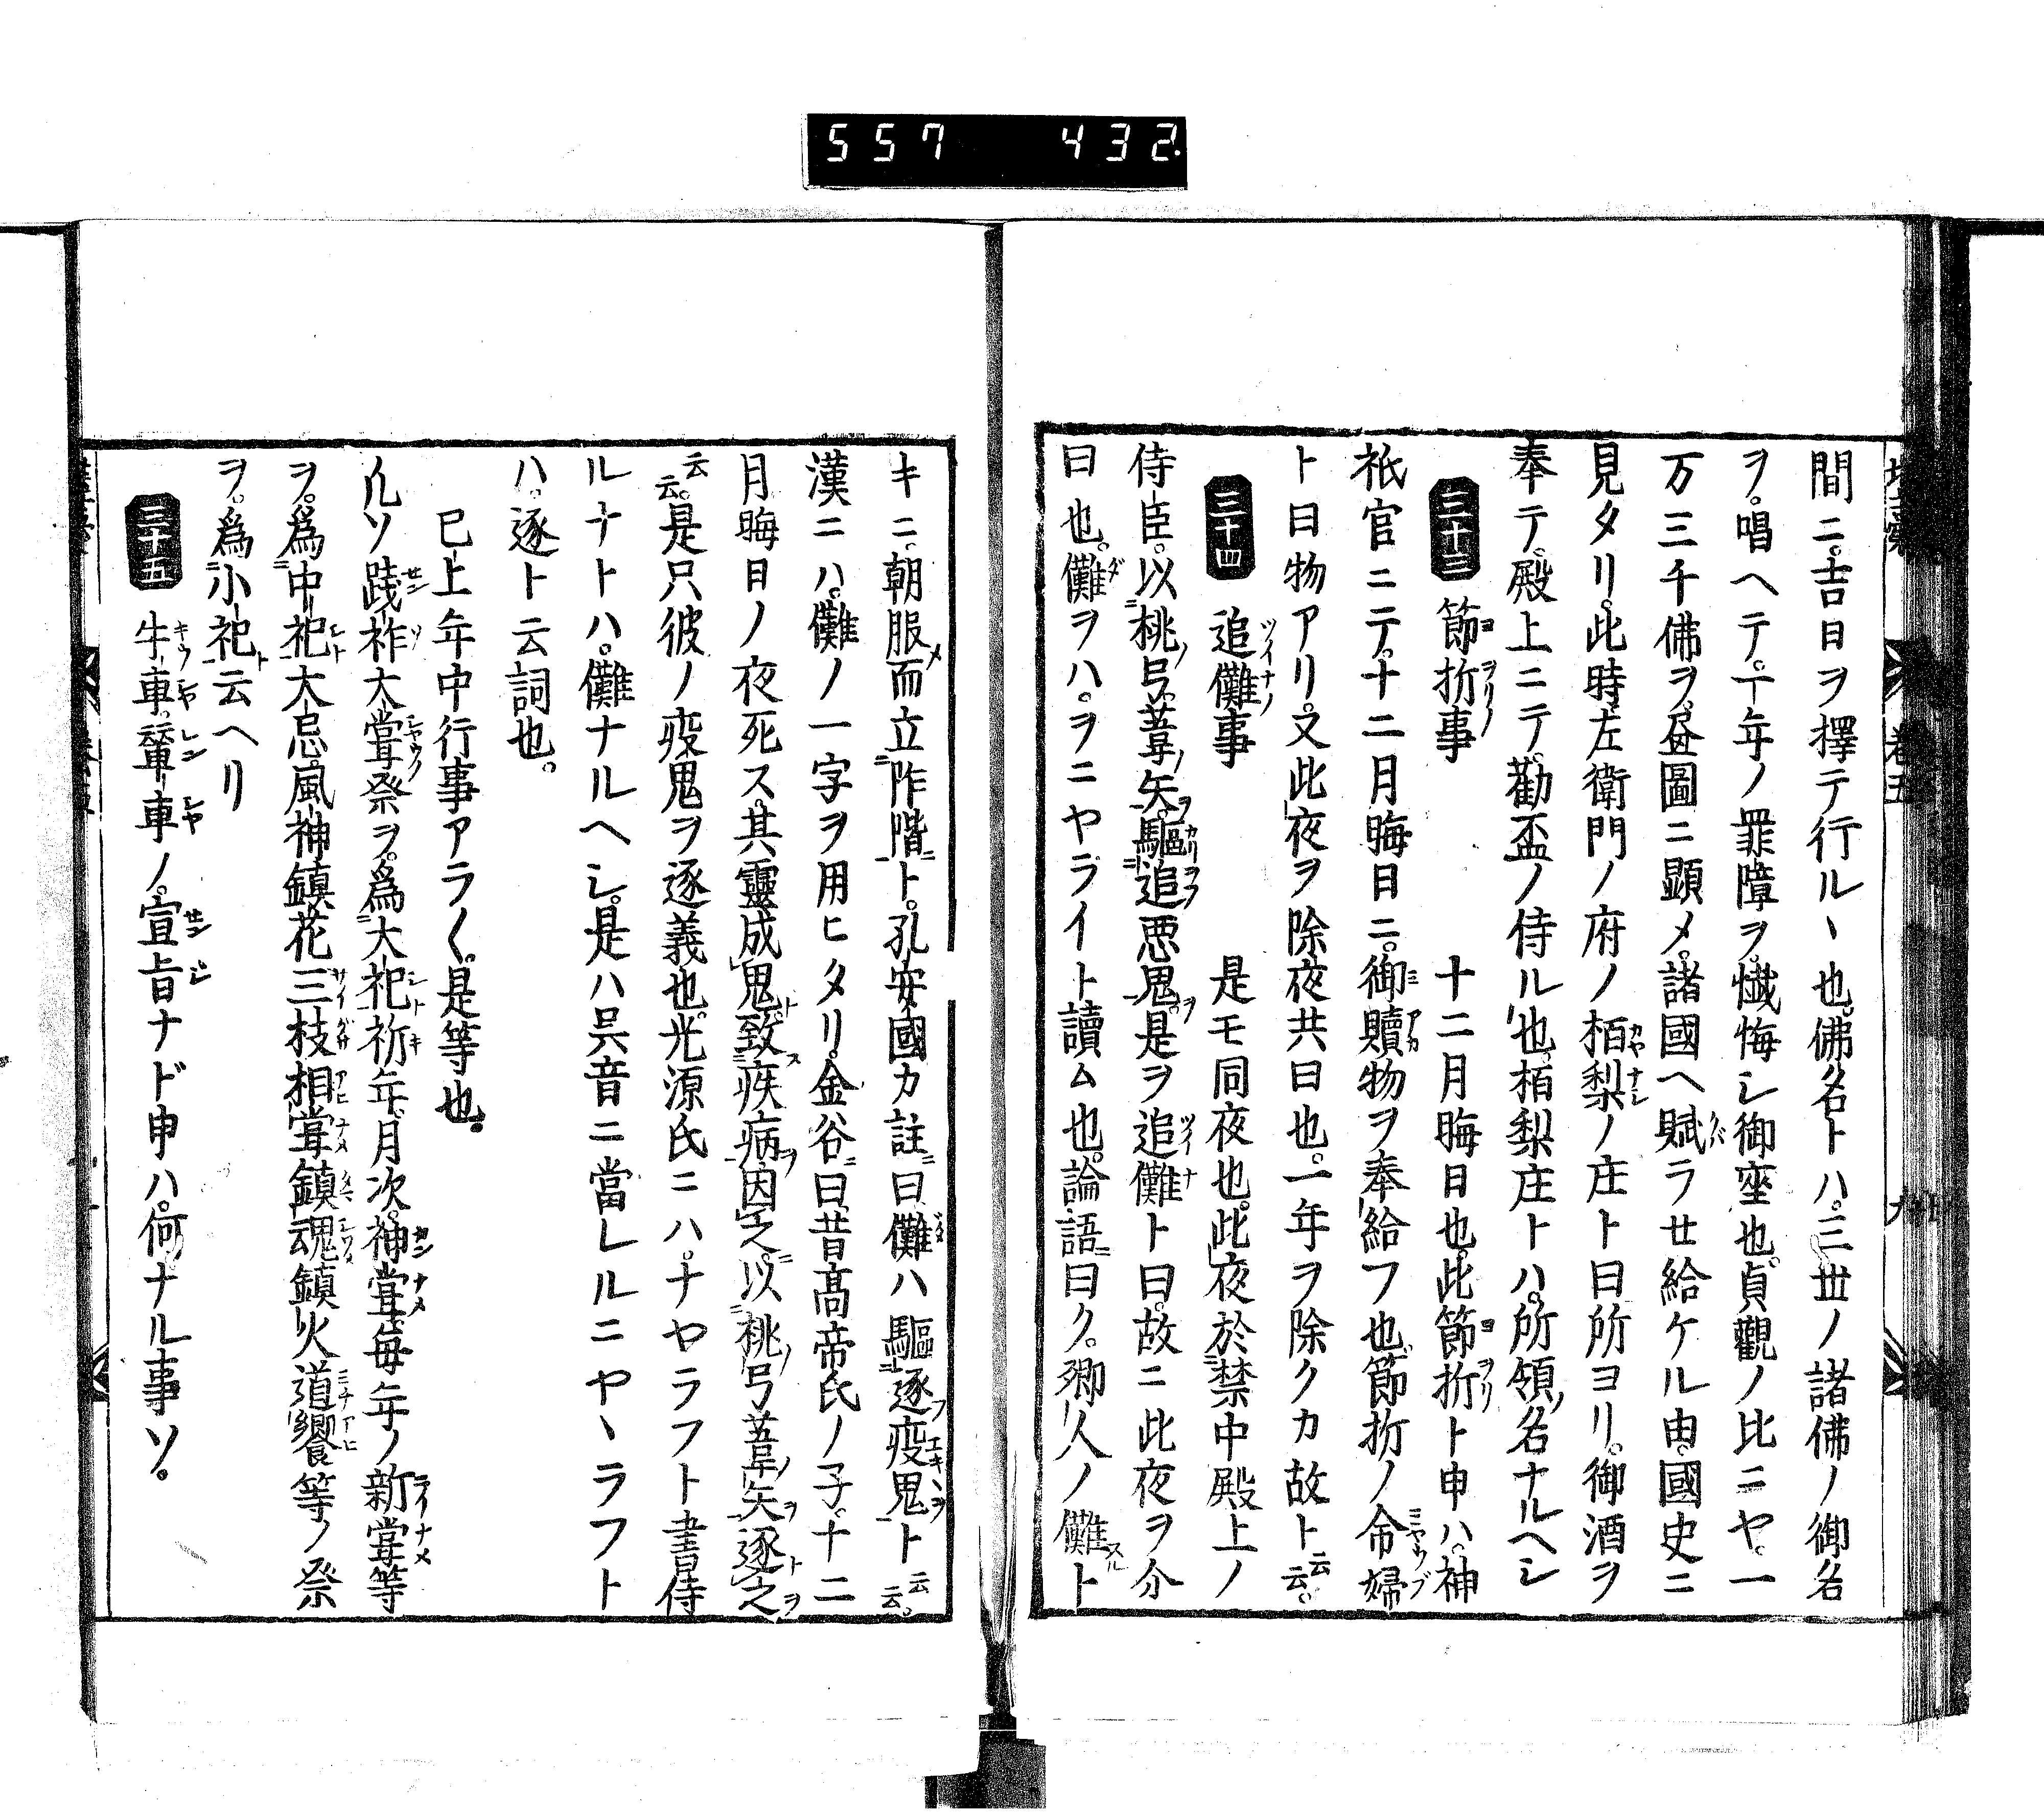 557 432.
間ニ。吉日ヲ擇テ行ルヽ也。佛名トハ。三丗ノ諸佛ノ御名
ヲ。唱ヘテ。一年ノ罪障ヲ。懺悔シ御座也。貞觀ノ比ニヤ。一
万三千佛ヲ。昼圖ニ顕メ。諸國ヘ賦ラせ給ケル由。國史ニ
見タリ。此時左衛門ノ府ノ栢梨ノ庄ト曰所ヨリ。御酒ヲ
奉テ。殿上ニテ。勸盃ノ侍ル也。栢梨庄トハ。所領ノ名ナルヘシ
三十三 節折事 十二月晦日也。此節折ト申ハ。神
祇官ニテ。十二月晦日ニ。御贖物ヲ奉給フ也。節折ノ命婦
ト曰物アリ。又此夜ヲ除夜共曰也。一年ヲ除クカ故ト云云。
三十四 追儺事 是モ同夜也。此夜於禁中殿上ノ
侍臣。以桃弓。葦矢。驅追惡鬼。是ヲ追儺ト曰。故ニ此夜ヲ分
曰也。儺ヲハ。ヲニヤライト讀ム也。論語曰ク。郷人ノ儺ト
キニ。朝服而立阼階ト。孔安國カ註曰儺ハ驅逐疫鬼ト云云。
漢ニハ。儺ノ一字ヲ用ヒタリ。金谷曰。昔高帝氏ノ子。十二
月晦日ノ夜死ス。其靈成鬼致疾病因之。以桃弓葦矢逐之
云云。是只彼ノ疫鬼ヲ逐義也。光源氏ニハ。ナヤラフト書侍
ルナトハ。儺ナルヘシ。是ハ呉音ニ當レルニヤヽラフト
ハ。逐ト云詞也。
已上年中行事アラ〱。是等也。
凡ソ践祚大甞祭ヲ。爲大祀祈年。月次。神甞。毎年ノ新甞等
ヲ。爲中祀大忌。風神鎮花三枝相甞鎮魂鎮火道饗等ノ祭
ヲ。爲小祀云ヘリ
三十五 牛車。輦車ノ。宣旨ナド申ハ。何ナル事ソ。